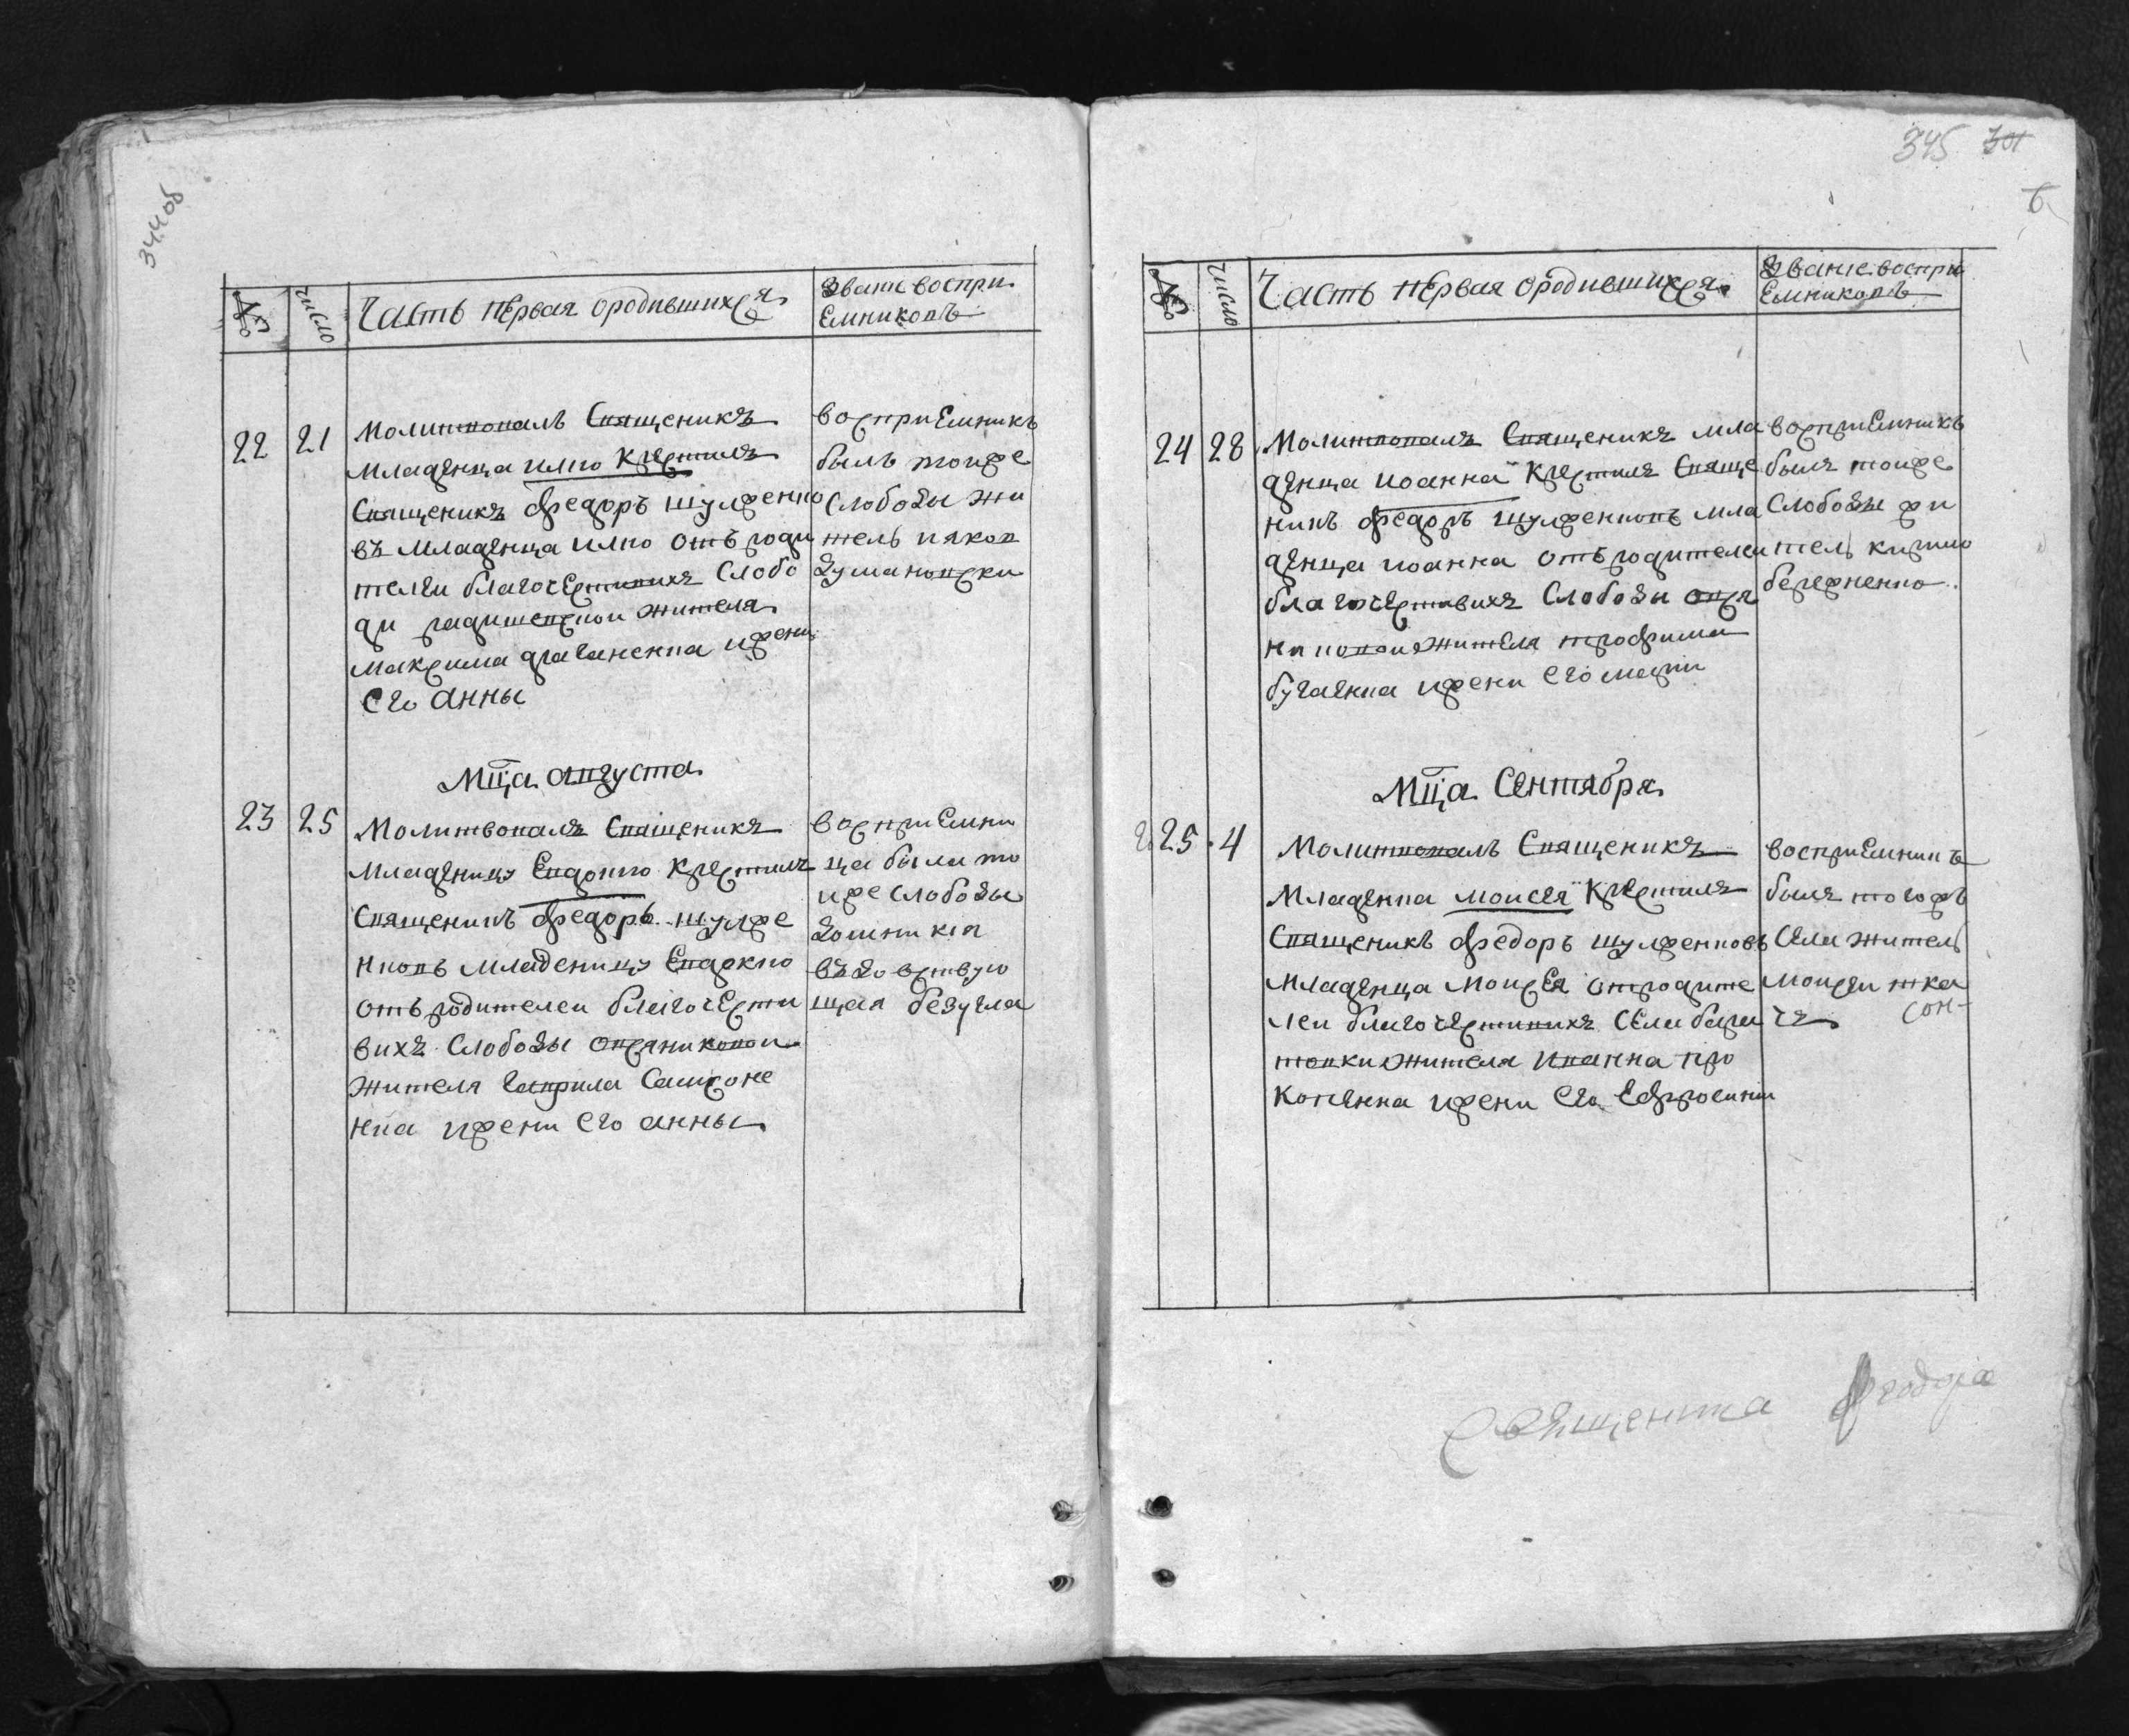 344об
№
число
Часть первая ородившихся
Звание воспри
емниковъ
22
21
Молитвовалъ Священикъ
младенца илию крестилъ
Священикъ федоръ шулженко
въ младенца илию отъ роди
телеи благочестивихъ слобо
ди жителя
максима ижени
его анны
восприемникъ
былъ тоиже
слободы жи
тель иаков
Мца августа
23
25
Молитвовалъ Священикъ
младеницу Евдокию крестилъ
Священикъ федоръ шулже
нковъ младеницу Евдокию
отъ родителеи благочести
вихъ слободы
жителя гаврила самсоне
нка ижени его анны
восприемни
ца была то
иже слободы
вдовству
ющая безугла
345 301
6
№
число
Часть первая ородившихся
Звание воспри
емниковъ
24
28
Молитвовалъ Священикъ мла
денца иоанна крестилъ Свяще
никъ федоръ шулженковъ мла
денца иоанна отъ родителеи
благочестивихъ слободы
жителя трофима
ижени его
восприемникъ
былъ тоиже
слободы жи
тель
бережненко
Мца Сентября
25
4
Молитвовалъ Священикъ
младенца моисея крестилъ
Священикъ федоръ шулженковъ
младенца моисея отродите
леи благочестивихъ села
жителя иванна про
копенка ижени его Ефросинии
восприемникъ
былъ тогожъ
села жител
моисеи тка
чъ
сон-
Священика федора